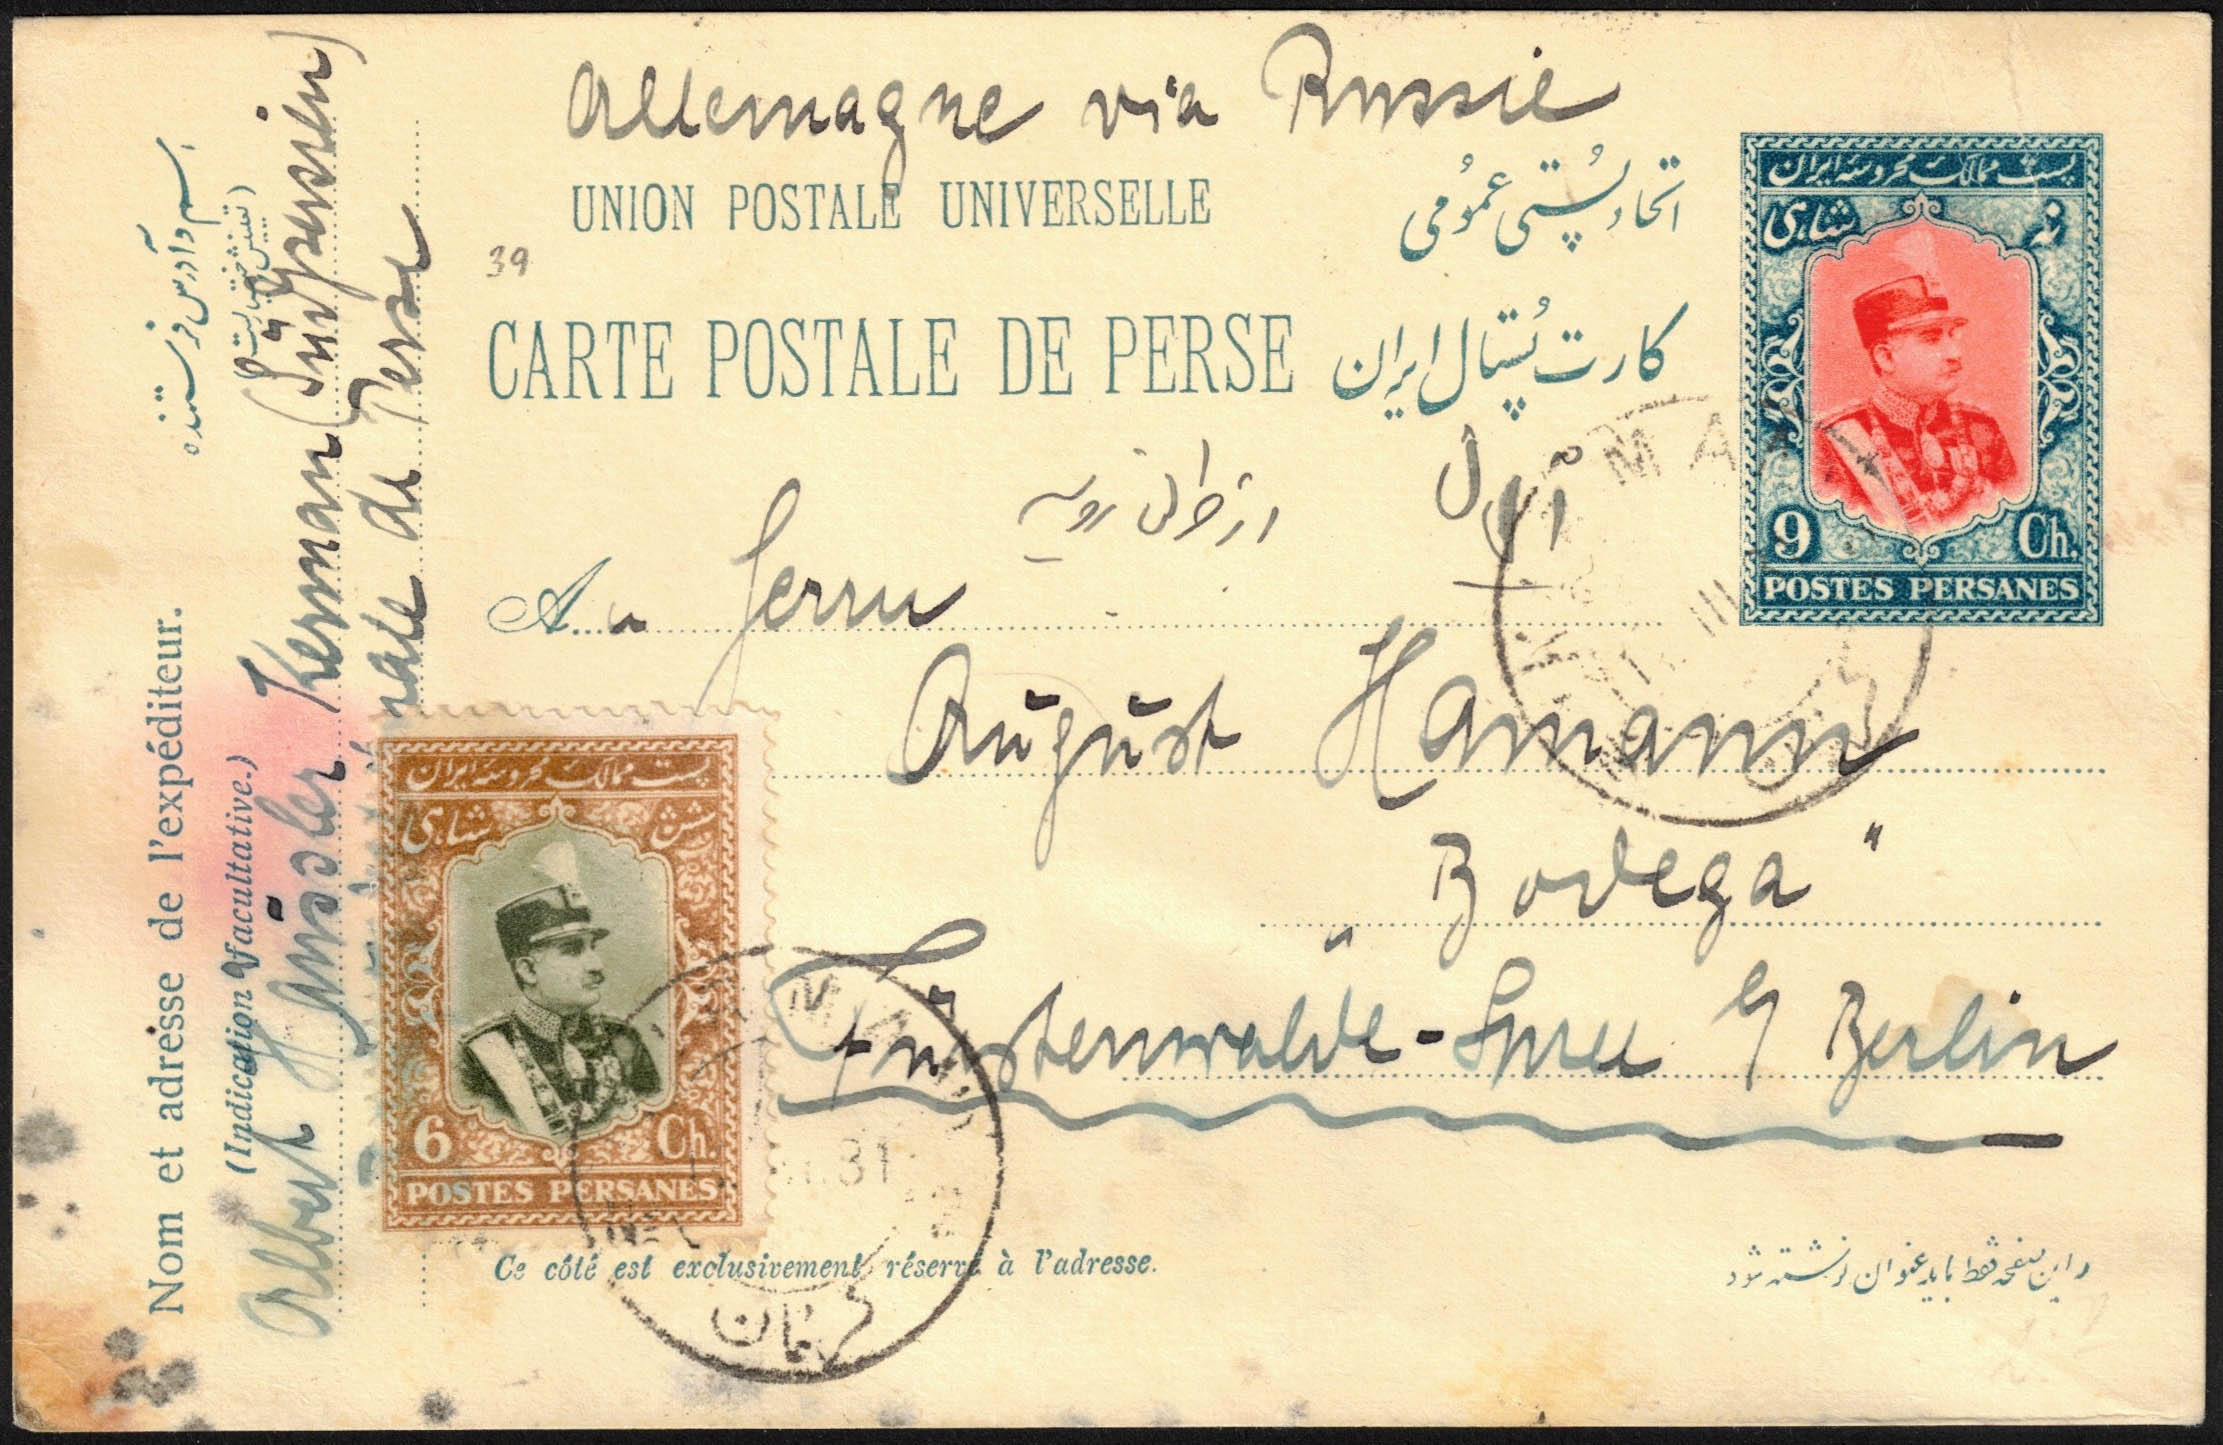 Allemagne via Russie
UNION POSTALE UNIVERSELLE
اتحاد پُستی عمُومی
39
CARTE POSTALE DE PERSE
کارت پُستال ایران
پست ممالک محروسه ایران
نه شاهی
9 Ch.
POSTES PERSANES
آلمان
از طریق روسیه
An Herrn
August Hamann
Bodega"
Fürstenwalde-Spree b/ Berlin
Nom et adresse de l'expéditeur.
(Indication facultative.)
اسم و آدرس فرستنده
Albert Häussler Kerman (Südpersien)
de Perse
پست ممالک محروسه ایران
شش شاهی
6 Ch.
POSTES PERSANES
31
کرمان
Ce côté est exclusivement réservé à l'adresse.
در این صفحه فقط باید عنوان نوشته شود